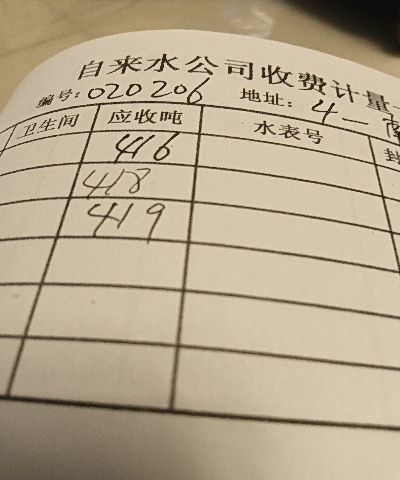 自来水公司收费计量
编号: 020206 地址: 4一南
卫生间 应收吨 水表号 封
416
418
419